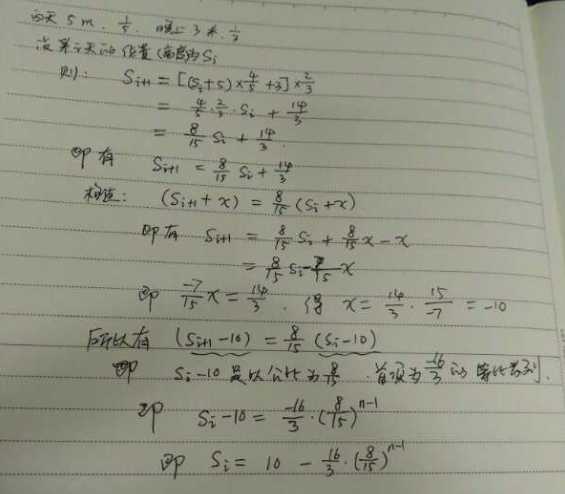 白天 5 m . 1/5 . 晚上 3 米 . 1/3
设第i天的位置(高度)为 Si
则: Si+1 = [(Si+5)×4/5 +3]×2/3
= 4/5·2/3·Si + 14/3
= 8/15 Si + 14/3.
即有 Si+1 = 8/15 Si + 14/3
构造: (Si+1 + x) = 8/15 (Si+x)
即有 Si+1 = 8/15 Si + 8/15 x − x
= 8/15 Si − 7/15 x
即 −7/15 x = 14/3 . 得 x = 14/3 · 15/−7 = −10
所以有 (Si+1 −10) = 8/15 (Si−10)
即 Si−10 是以公比为 8/15 首项为 −16/3 的等比数列.
即 Si−10 = −16/3 · (8/15)^n−1
即 Si = 10 − 16/3 · (8/15)^n−1